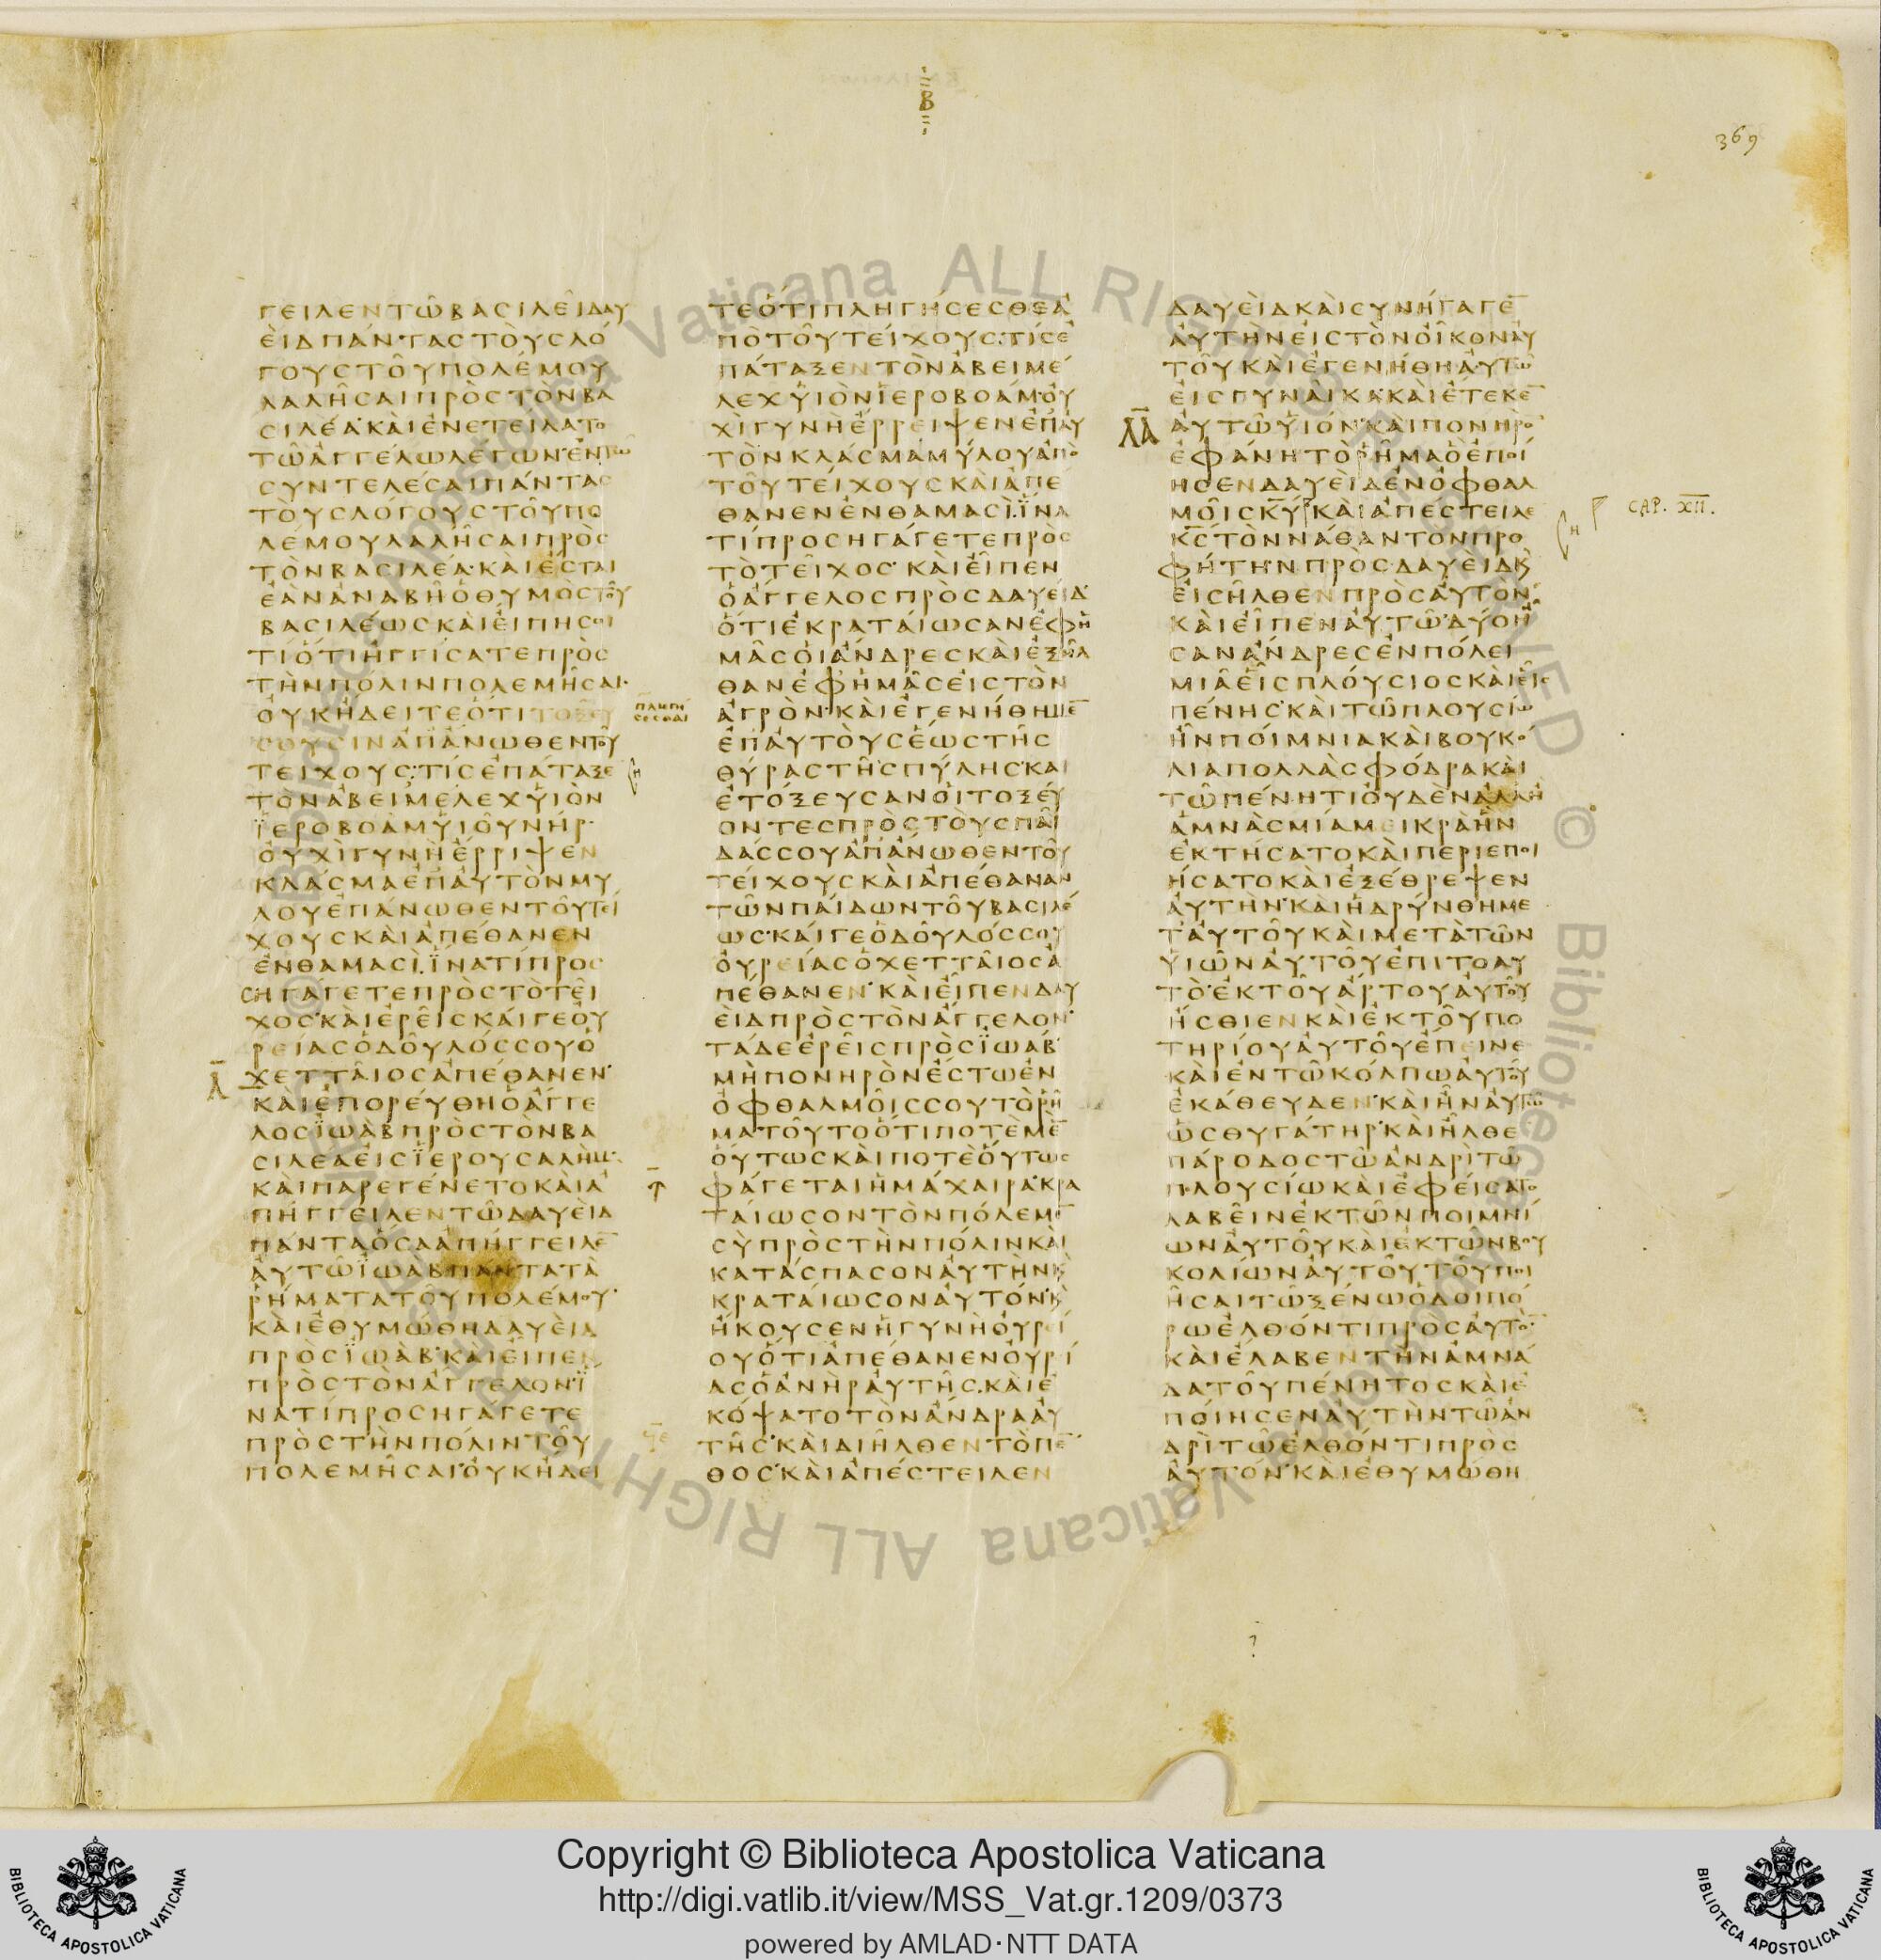 Β
369
ΓΕΙΛΕΝΤΩΒΑΣΙΛΕΙΔΑΥ
ΕΙΔΠΑΝΤΑΣΤΟΥΣΛΟ
ΓΟΥΣΤΟΥΠΟΛΕΜΟΥ
ΛΑΛΗΣΑΙΠΡΟΣΤΟΝΒΑ
ΣΙΛΕΑΚΑΙΕΝΕΤΕΙΛΑΤΟ
ΤΩΑΓΓΕΛΩΛΕΓΩΝΕΝΤΩ
ΣΥΝΤΕΛΕΣΑΙΠΑΝΤΑΣ
ΤΟΥΣΛΟΓΟΥΣΤΟΥΠΟ
ΛΕΜΟΥΛΑΛΗΣΑΙΠΡΟΣ
ΤΟΝΒΑΣΙΛΕΑΚΑΙΕΣΤΑΙ
ΕΑΝΑΝΑΒΗΟΘΥΜΟΣΤΟΥ
ΒΑΣΙΛΕΩΣΚΑΙΕΙΠΗΣΟΙ
ΤΙΟΤΙΗΓΓΙΣΑΤΕΠΡΟΣ
ΤΗΝΠΟΛΙΝΠΟΛΕΜΗΣΑΙ
ΟΥΚΗΔΕΙΤΕΟΤΙΤΟΞΕΥ
ΣΟΥΣΙΝΑΠΑΝΩΘΕΝΤΟΥ
ΤΕΙΧΟΥΣΤΙΣΕΠΑΤΑΞΕ
ΤΟΝΑΒΕΙΜΕΛΕΧΥΙΟΝ
ΪΕΡΟΒΟΑΜΥΙΟΥΝΗΡ
ΟΥΧΙΓΥΝΗΕΡΡΙΨΕΝ
ΚΛΑΣΜΑΕΠΑΥΤΟΝΜΥ
ΛΟΥΕΠΑΝΩΘΕΝΤΟΥΤΕΙ
ΧΟΥΣΚΑΙΑΠΕΘΑΝΕΝ
ΕΝΘΑΜΑΣΙΪΝΑΤΙΠΡΟΣ
ΗΓΑΓΕΤΕΠΡΟΣΤΟΤΕΙ
ΧΟΣΚΑΙΕΡΕΙΣΚΑΙΓΕΟΥ
ΡΕΙΑΣΟΔΟΥΛΟΣΣΟΥΟ
ΧΕΤΤΑΙΟΣΑΠΕΘΑΝΕΝ
Λ̅
ΚΑΙΕΠΟΡΕΥΘΗΟΑΓΓΕ
ΛΟΣΪΩΑΒΠΡΟΣΤΟΝΒΑ
ΣΙΛΕΑΕΙΣΪΕΡΟΥΣΑΛΗΜ
ΚΑΙΠΑΡΕΓΕΝΕΤΟΚΑΙΑ
ΠΗΓΓΕΙΛΕΝΤΩΔΑΥΕΙΔ
ΠΑΝΤΑΟΣΑΑΠΗΓΓΕΙΛΕ̅
ΑΥΤΩΪΩΑΒΠΑΝΤΑΤΑ
ΡΗΜΑΤΑΤΟΥΠΟΛΕΜΟΥ
ΚΑΙΕΘΥΜΩΘΗΔΑΥΕΙΔ
ΠΡΟΣΪΩΑΒΚΑΙΕΙΠΕΝ
ΠΡΟΣΤΟΝΑΓΓΕΛΟΝΪ
ΝΑΤΙΠΡΟΣΗΓΑΓΕΤΕ
ΠΡΟΣΤΗΝΠΟΛΙΝΤΟΥ
ΠΟΛΕΜΗΣΑΙΟΥΚΗΔΕΙ
ΠΛΗΓΗ
ΣΕΣΘΑΙ
ΤΕΟΤΙΠΛΗΓΗΣΕΣΘΕΑ
ΠΟΤΟΥΤΕΙΧΟΥΣΤΙΣΕ
ΠΑΤΑΞΕΝΤΟΝΑΒΕΙΜΕ
ΛΕΧΥΙΟΝΪΕΡΟΒΟΑΜΟΥ
ΧΙΓΥΝΗΕΡΡΕΙΨΕΝΕΠΑΥ
ΤΟΝΚΛΑΣΜΑΜΥΛΟΥΑΠΟ
ΤΟΥΤΕΙΧΟΥΣΚΑΙΑΠΕ
ΘΑΝΕΝΕΝΘΑΜΑΣΙΪΝΑ
ΤΙΠΡΟΣΗΓΑΓΕΤΕΠΡΟΣ
ΤΟΤΕΙΧΟΣΚΑΙΕΙΠΕΝ
ΟΑΓΓΕΛΟΣΠΡΟΣΔΑΥΕΙΔ
ΟΤΙΕΚΡΑΤΑΙΩΣΑΝΕΦΗ
ΜΑΣΟΙΑΝΔΡΕΣΚΑΙΕΞΗΛ
ΘΑΝΕΦΗΜΑΣΕΙΣΤΟΝ
ΑΓΡΟΝΚΑΙΕΓΕΝΗΘΗΜΕ̅
ΕΠΑΥΤΟΥΣΕΩΣΤΗΣ
ΘΥΡΑΣΤΗΣΠΥΛΗΣΚΑΙ
ΕΤΟΞΕΥΣΑΝΟΙΤΟΞΕΥ
ΟΝΤΕΣΠΡΟΣΤΟΥΣΠΑΙ
ΔΑΣΣΟΥΑΠΑΝΩΘΕΝΤΟΥ
ΤΕΙΧΟΥΣΚΑΙΑΠΕΘΑΝΑΝ
ΤΩΝΠΑΙΔΩΝΤΟΥΒΑΣΙΛΕ
ΩΣΚΑΙΓΕΟΔΟΥΛΟΣΣΟΥ
ΟΥΡΕΙΑΣΟΧΕΤΤΑΙΟΣΑ
ΠΕΘΑΝΕΝΚΑΙΕΙΠΕΝΔΑΥ
ΕΙΔΠΡΟΣΤΟΝΑΓΓΕΛΟΝ
ΤΑΔΕΕΡΕΙΣΠΡΟΣΪΩΑΒ
ΜΗΠΟΝΗΡΟΝΕΣΤΩΕΝ
ΟΦΘΑΛΜΟΙΣΣΟΥΤΟΡΗ
ΜΑΤΟΥΤΟΟΤΙΠΟΤΕΜΕ̅
ΟΥΤΩΣΚΑΙΠΟΤΕΟΥΤΩΣ
ΦΑΓΕΤΑΙΗΜΑΧΑΙΡΑΚΡΑ
ΤΑΙΩΣΟΝΤΟΝΠΟΛΕΜΟ̅
ΣΥΠΡΟΣΤΗΝΠΟΛΙΝΚΑΙ
ΚΑΤΑΣΠΑΣΟΝΑΥΤΗΝΚ
ΚΡΑΤΑΙΩΣΟΝΑΥΤΟΝΚ
ΗΚΟΥΣΕΝΗΓΥΝΗΟΥΡΕΙ
ΟΥΟΤΙΑΠΕΘΑΝΕΝΟΥΡΙ
ΑΣΟΑΝΗΡΑΥΤΗΣΚΑΙΕ
ΚΟΨΑΤΟΤΟΝΑΝΔΡΑΑΥ
ΤΗΣΚΑΙΔΙΗΛΘΕΝΤΟΠΕ̅
ΘΟΣΚΑΙΑΠΕΣΤΕΙΛΕΝ
ΔΑΥΕΙΔΚΑΙΣΥΝΗΓΑΓΕ̅
ΑΥΤΗΝΕΙΣΤΟΝΟΙΚΟΝΑΥ
ΤΟΥΚΑΙΕΓΕΝΗΘΗΑΥΤΩ
ΕΙΣΓΥΝΑΙΚΑΚΑΙΕΤΕΚΕ̅
ΑΥΤΩΥΙΟΝΚΑΙΠΟΝΗΡΟ̅
Λ̅Α̅
ΕΦΑΝΗΤΟΡΗΜΑΟΕΠΟΙ
ΗΣΕΝΔΑΥΕΙΔΕΝΟΦΘΑΛ
ΜΟΙΣΚ̅Υ̅ΚΑΙΑΠΕΣΤΕΙΛΕ
Κ̅Σ̅ΤΟΝΝΑΘΑΝΤΟΝΠΡΟ
ΦΗΤΗΝΠΡΟΣΔΑΥΕΙΔΚ
ΕΙΣΗΛΘΕΝΠΡΟΣΑΥΤΟΝ
ΚΑΙΕΙΠΕΝΑΥΤΩΔΥΟΗ
ΣΑΝΑΝΔΡΕΣΕΝΠΟΛΕΙ
ΜΙΑΕΙΣΠΛΟΥΣΙΟΣΚΑΙΕΙΣ
ΠΕΝΗΣΚΑΙΤΩΠΛΟΥΣΙΩ
ΗΝΠΟΙΜΝΙΑΚΑΙΒΟΥΚΟ
ΛΙΑΠΟΛΛΑΣΦΟΔΡΑΚΑΙ
ΤΩΠΕΝΗΤΙΟΥΔΕΝΑΛΛΗ
ΑΜΝΑΣΜΙΑΜΕΙΚΡΑΗΝ
ΕΚΤΗΣΑΤΟΚΑΙΠΕΡΙΕΠΟΙ
ΗΣΑΤΟΚΑΙΕΞΕΘΡΕΨΕΝ
ΑΥΤΗΝΚΑΙΗΔΡΥΝΘΗΜΕ
ΤΑΥΤΟΥΚΑΙΜΕΤΑΤΩΝ
ΥΙΩΝΑΥΤΟΥΕΠΙΤΟΑΥ
ΤΟΕΚΤΟΥΑΡΤΟΥΑΥΤΟΥ
ΗΣΘΙΕΝΚΑΙΕΚΤΟΥΠΟ
ΤΗΡΙΟΥΑΥΤΟΥΕΠΕΙΝΕ
ΚΑΙΕΝΤΩΚΟΛΠΩΑΥΤΟΥ
ΕΚΑΘΕΥΔΕΝΚΑΙΗΝΑΥΤΩ
ΩΣΘΥΓΑΤΗΡΚΑΙΗΛΘΕ
ΠΑΡΟΔΟΣΤΩΑΝΔΡΙΤΩ
ΠΛΟΥΣΙΩΚΑΙΕΦΕΙΣΑΤΟ
ΛΑΒΕΙΝΕΚΤΩΝΠΟΙΜΝΙ
ΩΝΑΥΤΟΥΚΑΙΕΚΤΩΝΒΟΥ
ΚΟΛΙΩΝΑΥΤΟΥΤΟΥΠΟΙ
ΗΣΑΙΤΩΞΕΝΩΟΔΟΙΠΟ
ΡΩΕΛΘΟΝΤΙΠΡΟΣΑΥΤΟ̅
ΚΑΙΕΛΑΒΕΝΤΗΝΑΜΝΑ
ΔΑΤΟΥΠΕΝΗΤΟΣΚΑΙΕ
ΠΟΙΗΣΕΝΑΥΤΗΝΤΩΑΝ
ΔΡΙΤΩΕΛΘΟΝΤΙΠΡΟΣ
ΑΥΤΟΝΚΑΙΕΘΥΜΩΘΗ
CAP. XII.
Copyright © Biblioteca Apostolica Vaticana
http://digi.vatlib.it/view/MSS_Vat.gr.1209/0373
powered by AMLAD·NTT DATA
BIBLIOTECA APOSTOLICA VATICANA
BIBLIOTECA APOSTOLICA VATICANA